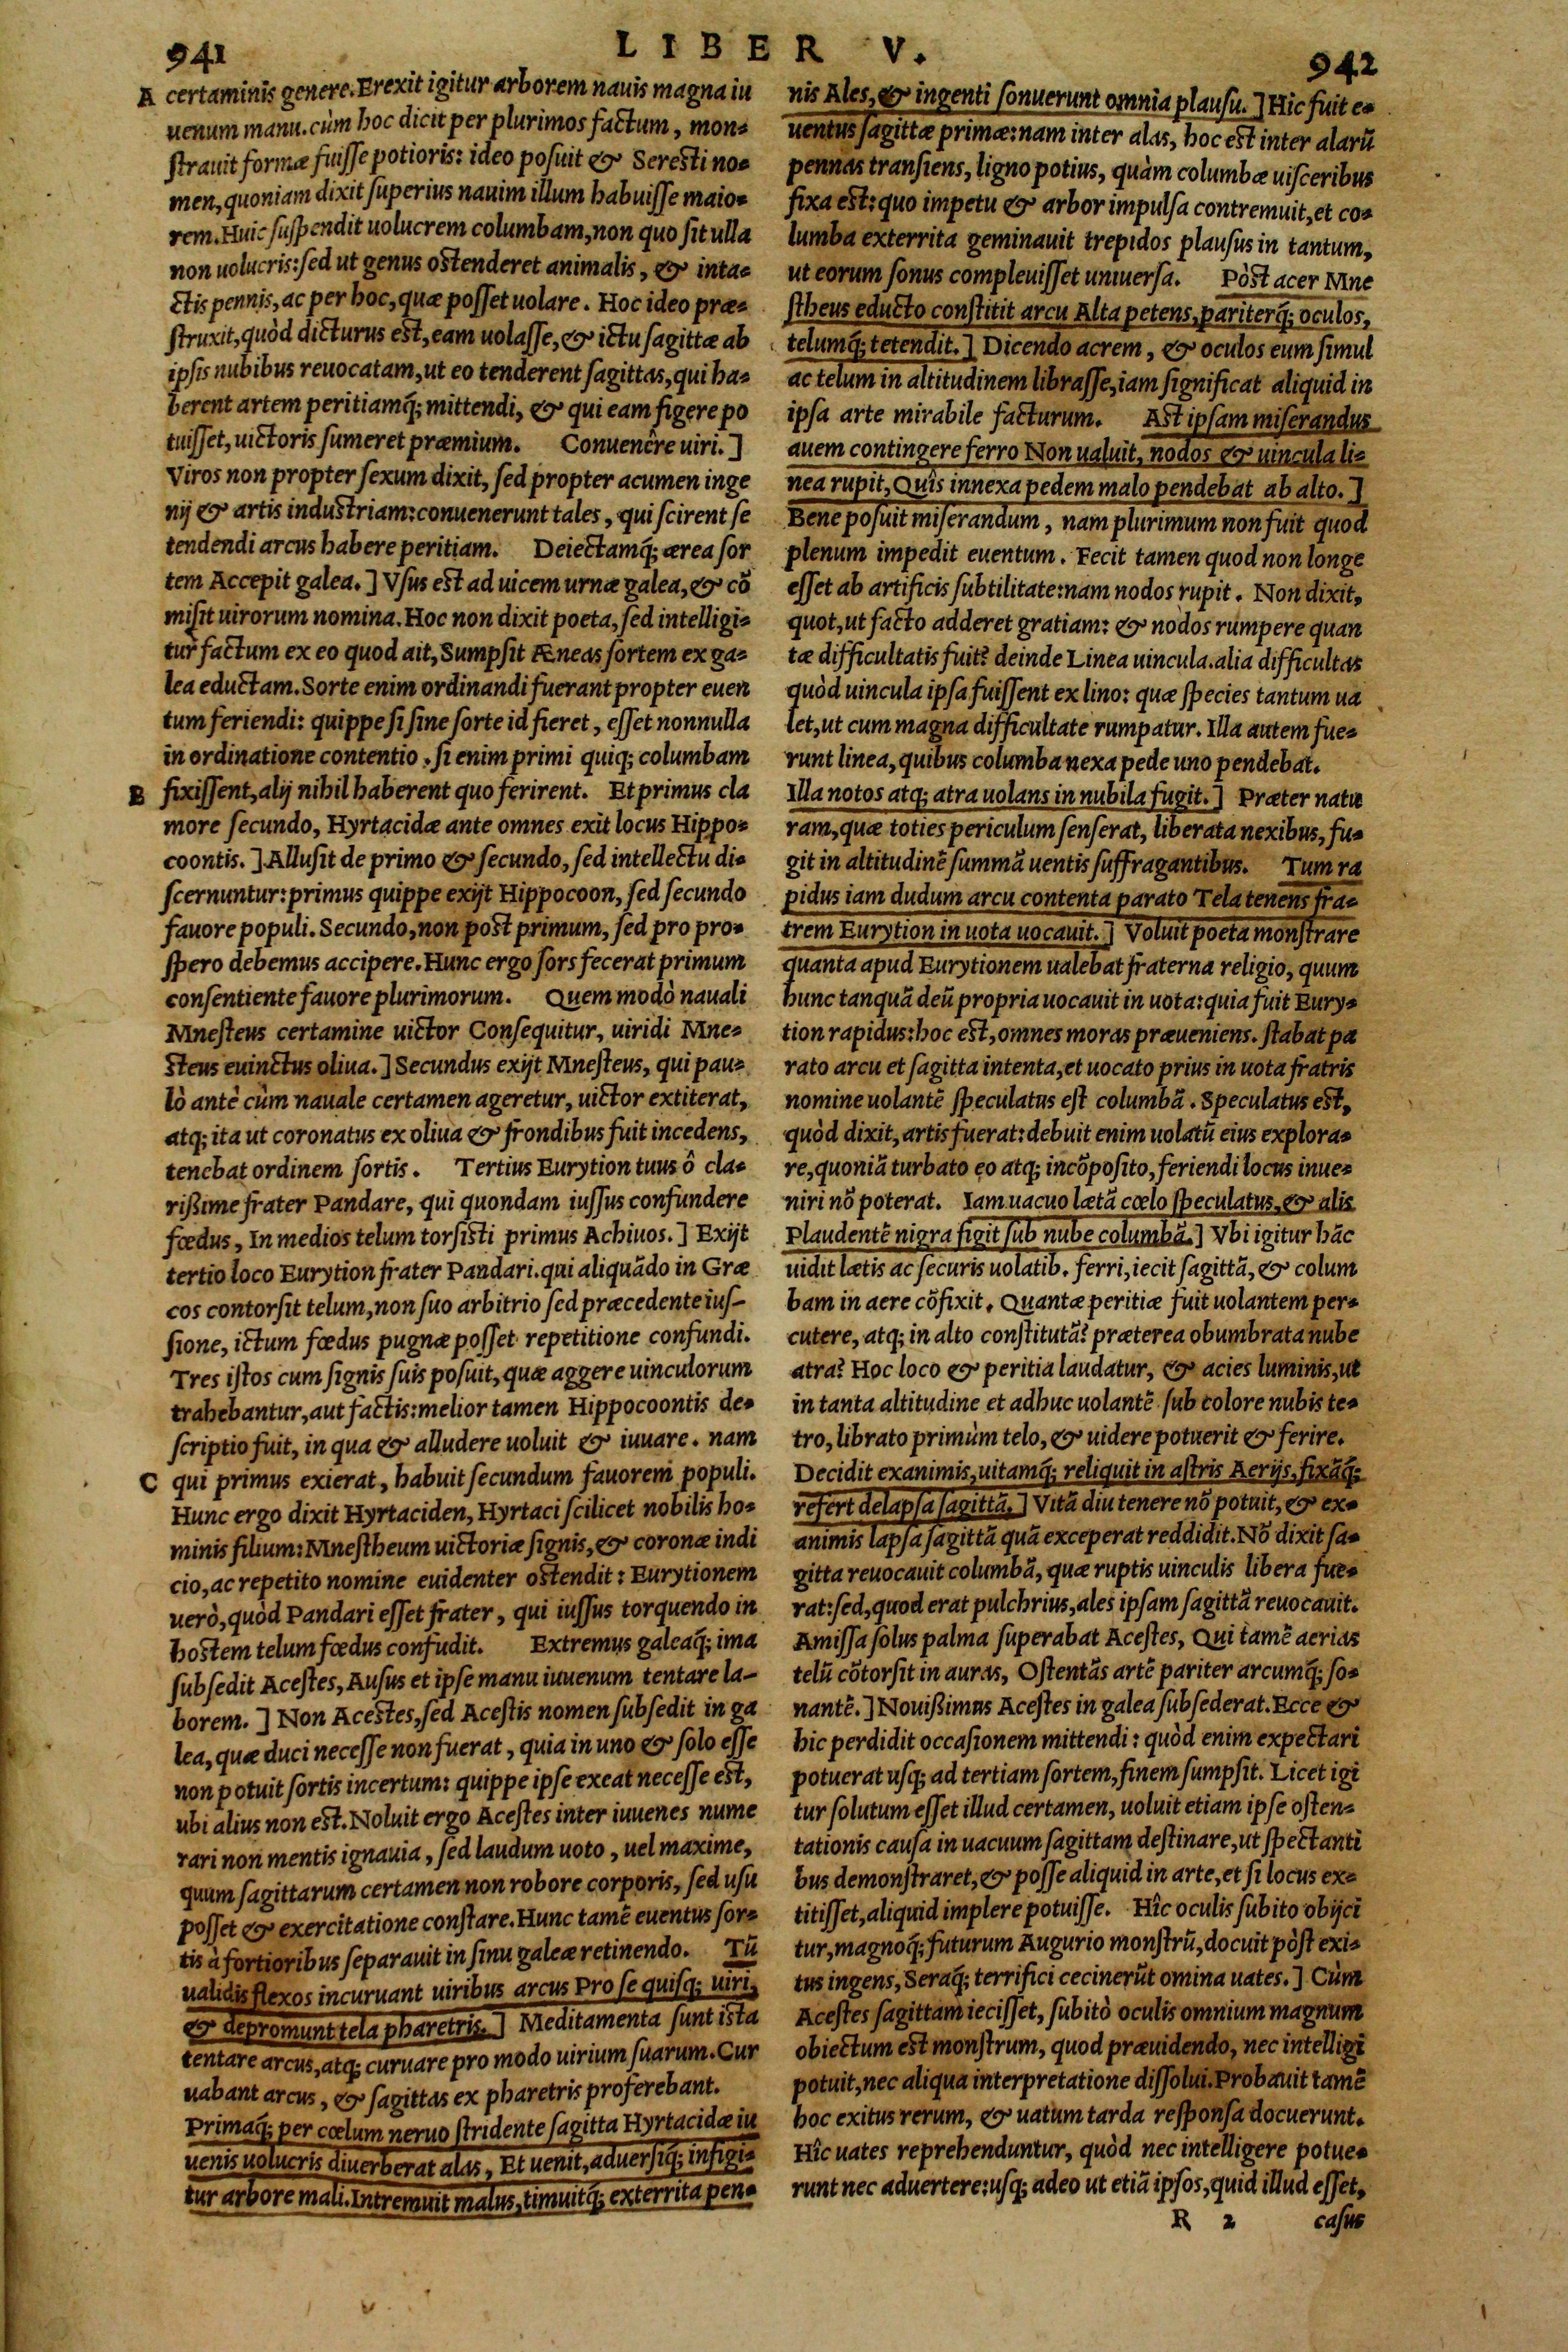 941
LIBER V.
942
A certaminis genere. Erexit igitur arborem nauis magna iu
uenum manu. cùm hoc dicit per plurimos factum, mon=
strauit formæ fuisse potioris: ideo posuit & Seresti no=
men, quoniam dixit superius nauim illum habuisse maio=
rem. Huic suspendit uolucrem columbam, non quo sit ulla
non uolucris: sed ut genus ostenderet animalis, & inta=
ctis pennis, ac per hoc, quæ posset uolare. Hoc ideo præ=
struxit, quòd dicturus est, eam uolasse, & ictu sagittæ ab
ipsis nubibus reuocatam, ut eo tenderent sagittas, qui ha=
berent artem peritiamq́; mittendi, & qui eam figere po
tuisset, uictoris sumeret præmium. Conuenêre uiri. ]
Viros non propter sexum dixit, sed propter acumen inge
nij & artis industriam: conuenerunt tales, qui scirent se
tendendi arcus habere peritiam. Deiectamq́; ærea sor
tem Accepit galea. ] Vsus est ad uicem urnæ galea, & cõ
misit uirorum nomina. Hoc non dixit poeta, sed intelligi=
tur factum ex eo quod ait, Sumpsit Æneas sortem ex ga=
lea eductam. Sorte enim ordinandi fuerant propter euen
tum feriendi: quippe si sine sorte id fieret, esset nonnulla
in ordinatione contentio. si enim primi quiq; columbam
B fixissent, alij nihil haberent quo ferirent. Et primus cla
more secundo, Hyrtacidæ ante omnes exit locus Hippo=
coontis. ] Allusit de primo & secundo, sed intellectu di=
scernuntur: primus quippe exijt Hippocoon, sed secundo
fauore populi. Secundo, non post primum, sed pro pro=
spero debemus accipere. Hunc ergo sors fecerat primum
consentiente fauore plurimorum. Quem modò nauali
Mnesteus certamine uictor Consequitur, uiridi Mne=
steus euinctus oliua. ] Secundus exijt Mnesteus, qui pau=
lò antè cùm nauale certamen ageretur, uictor extiterat,
atq; ita ut coronatus ex oliua & frondibus fuit incedens,
tenebat ordinem sortis. Tertius Eurytion tuus ô cla=
rißime frater Pandare, qui quondam iussus confundere
fœdus, In medios telum torsisti primus Achiuos. ] Exijt
tertio loco Eurytion frater Pandari. qui aliquãdo in Græ
cos contorsit telum, non suo arbitrio sed præcedente ius-
sione, ictum fœdus pugnæ posset repetitione confundi.
Tres istos cum signis suis posuit, quæ aggere uinculorum
trahebantur, aut factis: melior tamen Hippocoontis de=
scriptio fuit, in qua & alludere uoluit & iuuare. nam
C qui primus exierat, habuit secundum fauorem populi.
Hunc ergo dixit Hyrtaciden, Hyrtaci scilicet nobilis ho=
minis filium: Mnestheum uictoriæ signis, & coronæ indi
cio, ac repetito nomine euidenter ostendit: Eurytionem
uerò, quòd Pandari esset frater, qui iussus torquendo in
hostem telum fœdus confudit. Extremus galeaq́; ima
subsedit Acestes, Ausus et ipse manu iuuenum tentare la-
borem. ] Non Acestes, sed Acestis nomen subsedit in ga
lea, quæ duci necesse non fuerat, quia in uno & solo esse
non potuit sortis incertum: quippe ipse exeat necesse est,
ubi alius non est. Noluit ergo Acestes inter iuuenes nume
rari non mentis ignauia, sed laudum uoto, uel maxime,
quum sagittarum certamen non robore corporis, sed usu
posset & exercitatione constare. Hunc tamẽ euentus sor=
tis à fortioribus separauit in sinu galeæ retinendo. Tũ
ualidis flexos incuruant uiribus arcus Pro se quisq; uiri,
& depromunt tela pharetris. ] Meditamenta sunt ista
tentare arcus, atq; curuare pro modo uirium suarum. Cur
uabant arcus, & sagittas ex pharetris proferebant.
Primaq́; per cœlum neruo stridente sagitta Hyrtacidæ iu
uenis uolucris diuerberat alas, Et uenit, aduersiq́; infigi=
tur arbore mali. Intremuit malus, timuitq́; exterrita pen=
nis Ales, & ingenti sonuerunt omnia plausu. ] Hic fuit e=
uentus sagittæ primæ: nam inter alas, hoc est inter alarũ
pennas transiens, ligno potius, quàm columbæ uisceribus
fixa est: quo impetu & arbor impulsa contremuit, et co=
lumba exterrita geminauit trepidos plausus in tantum,
ut eorum sonus compleuisset uniuersa. Pòst acer Mne
stheus educto constitit arcu Alta petens, pariterq́; oculos,
telumq́; tetendit. ] Dicendo acrem, & oculos eum simul
ac telum in altitudinem librasse, iam significat aliquid in
ipsa arte mirabile facturum. Ast ipsam miserandus
auem contingere ferro Non ualuit, nodos & uincula li=
nea rupit, Quîs innexa pedem malo pendebat ab alto. ]
Bene posuit miserandum, nam plurimum non fuit quod
plenum impedit euentum. Fecit tamen quod non longe
esset ab artificis subtilitate: nam nodos rupit. Non dixit,
quot, ut facto adderet gratiam: & nodos rumpere quan
tæ difficultatis fuit? deinde Linea uincula. alia difficultas
quòd uincula ipsa fuissent ex lino: quæ species tantum ua
let, ut cum magna difficultate rumpatur. Illa autem fue=
runt linea, quibus columba nexa pede uno pendebat.
Illa notos atq; atra uolans in nubila fugit. ] Præter natu
ram, quæ toties periculum senserat, liberata nexibus, fu=
git in altitudinẽ summã uentis suffragantibus. Tum ra
pidus iam dudum arcu contenta parato Tela tenens fra=
trem Eurytion in uota uocauit. ] Voluit poeta monstrare
quanta apud Eurytionem ualebat fraterna religio, quum
hunc tanquã deũ propria uocauit in uota: quia fuit Eury=
tion rapidus: hoc est, omnes moras præueniens. stabat pa
rato arcu et sagitta intenta, et uocato prius in uota fratris
nomine uolantẽ speculatus est columbã. Speculatus est,
quòd dixit, artis fuerat: debuit enim uolatũ eius explora=
re, quoniã turbato eo atq; incõposito, feriendi locus inue=
niri nõ poterat. Iam uacuo lætã cœlo speculatus, & alis
Plaudentẽ nigra figit sub nube columbã. ] Vbi igitur hãc
uidit lætis ac securis uolatib. ferri, iecit sagittã, & colum
bam in aere cõfixit. Quantæ peritiæ fuit uolantem per=
cutere, atq; in alto constitutã? præterea obumbrata nube
atra? Hoc loco & peritia laudatur, & acies luminis, ut
in tanta altitudine et adhuc uolantẽ sub colore nubis te=
tro, librato primùm telo, & uidere potuerit & ferire.
Decidit exanimis, uitamq́; reliquit in astris Aerijs, fixãq́;
refert delapsa sagittã. ] Vitã diu tenere nõ potuit, & ex=
animis lapsa sagittã quã exceperat reddidit. Nõ dixit sa=
gitta reuocauit columbã, quæ ruptis uinculis libera fue=
rat: sed, quod erat pulchrius, ales ipsam sagittã reuocauit.
Amissa solus palma superabat Acestes, Qui tamẽ aerias
telũ cõtorsit in auras, Ostentãs artẽ pariter arcumq́; so=
nantẽ. ] Nouißimus Acestes in galea subsederat. Ecce &
hic perdidit occasionem mittendi: quòd enim expectari
potuerat usq; ad tertiam sortem, finem sumpsit. Licet igi
tur solutum esset illud certamen, uoluit etiam ipse osten=
tationis causa in uacuum sagittam destinare, ut spectanti
bus demonstraret, & posse aliquid in arte, et si locus ex=
titisset, aliquid implere potuisse. Hîc oculis subito obijci
tur, magnoq́; futurum Augurio monstrũ, docuit pòst exi=
tus ingens, Seraq́; terrifici cecinerũt omina uates. ] Cùm
Acestes sagittam iecisset, subitò oculis omnium magnum
obiectum est monstrum, quod præuidendo, nec intelligi
potuit, nec aliqua interpretatione dissolui. Probauit tamẽ
hoc exitus rerum, & uatum tarda responsa docuerunt.
Hîc uates reprehenduntur, quòd nec intelligere potue=
runt nec aduertere: usq; adeo ut etiã ipsos, quid illud esset,
R 2 casus